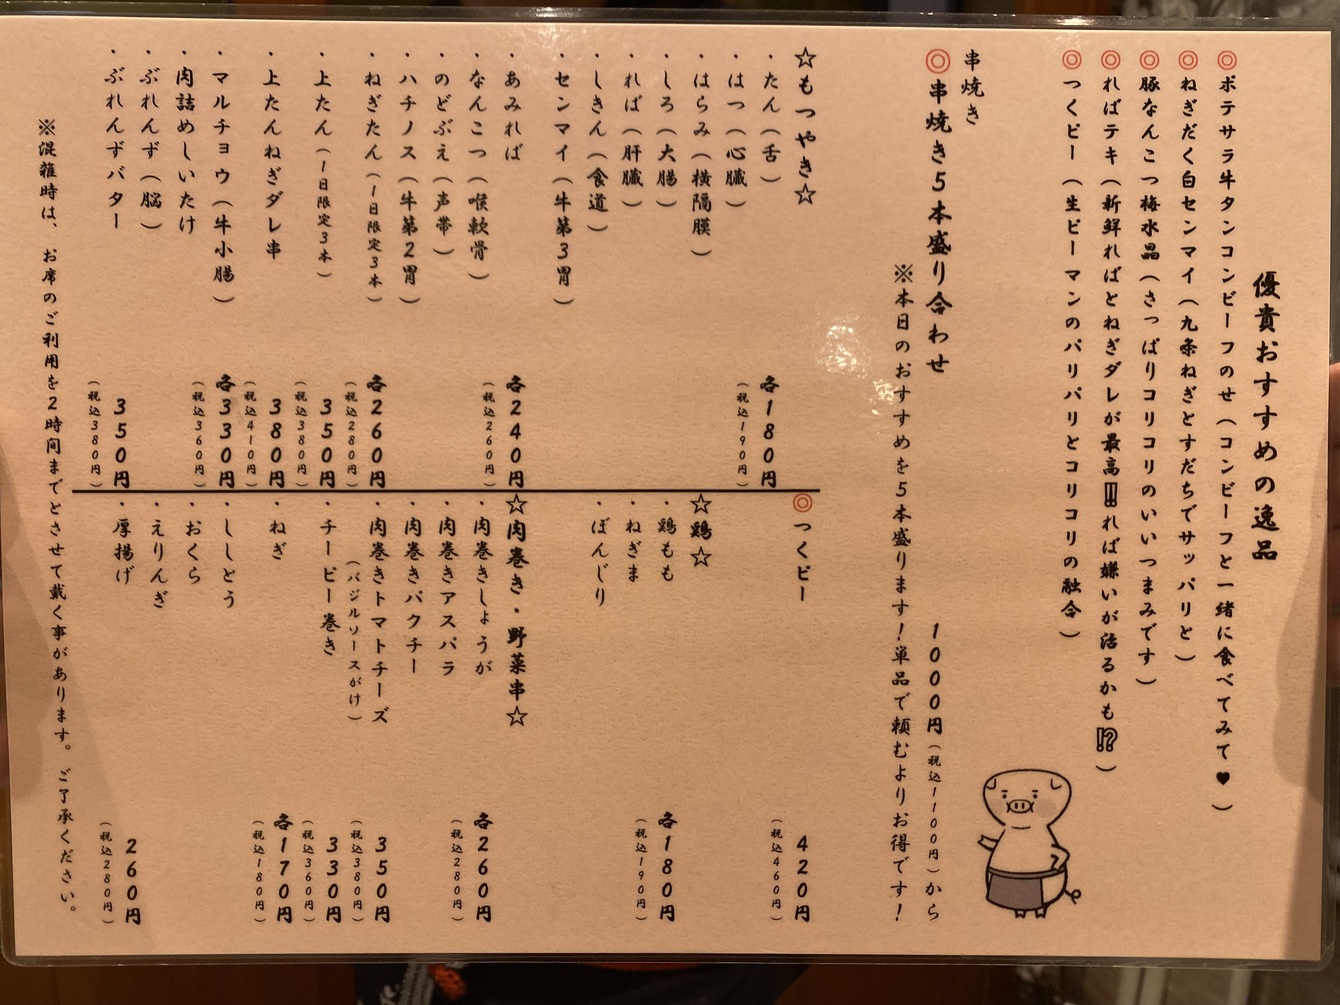 優貴おすすめの逸品
◎ポテサラ牛タンコンビーフのせ（コンビーフと一緒に食べてみて♥）
◎ねぎだく白センマイ（九条ねぎとすだちでサッパリと）
◎豚なんこつ梅水晶（さっぱりコリコリのいいつまみです）
◎ればテキ（新鮮ればとねぎダレが最高‼れば嫌いが治るかも⁉）
◎つくピー（生ピーマンのパリパリとコリコリの融合）
串焼き
◎串焼き5本盛り合わせ 1000円（税込1100円）から
※本日のおすすめを5本盛ります！単品で頼むよりお得です！
☆もつやき☆
・たん（舌） 各180円
（税込190円）
・はつ（心臓）
・はらみ（横隔膜）
・しろ（大腸）
・れば（肝臓）
・しきん（食道）
・センマイ（牛第3胃）
・あみれば 各240円
（税込260円）
・なんこつ（喉軟骨）
・のどぶえ（声帯）
・ハチノス（牛第2胃）
・ねぎたん（1日限定3本） 各260円
（税込280円）
・上たん（1日限定3本） 350円
（税込380円）
・上たんねぎダレ串 380円
（税込410円）
・マルチョウ（牛小腸） 各330円
（税込360円）
・肉詰めしいたけ
・ぶれんず（脳）
・ぶれんずバター 350円
（税込380円）
◎つくピー 420円
（税込460円）
☆鶏☆
・鶏もも 各180円
（税込190円）
・ねぎま
・ぼんじり
☆肉巻き・野菜串☆
・肉巻きしょうが 各260円
（税込280円）
・肉巻きアスパラ
・肉巻きパクチー
・肉巻きトマトチーズ 350円
（バジルソースがけ） （税込380円）
・チーピー巻き 330円
（税込360円）
・ねぎ 各170円
（税込180円）
・ししとう
・おくら
・えりんぎ
・厚揚げ 260円
（税込280円）
※混雑時は、お席のご利用を2時間までとさせて戴く事があります。ご了承ください。